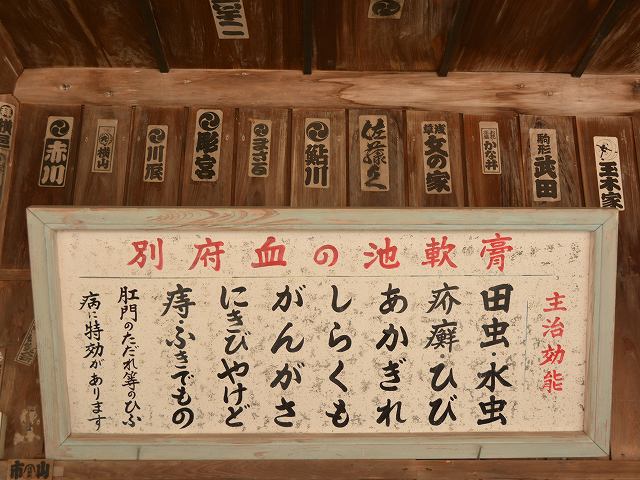 別府血の池軟膏
主治効能
田虫・水虫
疥癬・ひび
あかぎれ
しらくも
がんがさ
にきびやけど
痔・ふきでもの
肛門のただれ等のひふ
病に特効があります
赤川
横内
川辰
彫宮
鮎川
佐藤
浅草
女の家
かな井
駒形
武田
玉木家
市山